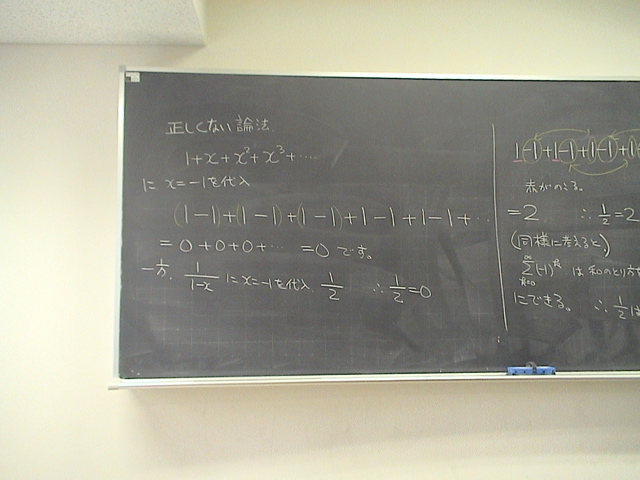 正しくない論法
1+x+x²+x³+⋯
に x=-1を代入
(1-1)+(1-1)+(1-1)+1-1+1-1+⋯
=0+0+0+⋯ =0 です。
一方、1/(1-x) に x=-1を代入、1/2 ∴ 1/2=0
1-1+1-1+1-1+1
赤がのこる。
=2 ∴ 1/2=2
(同様に考えると、)
∑_{k=0}^{∞}(-1)^k は 和のとり方
にできる。 ∴ 1/2 は